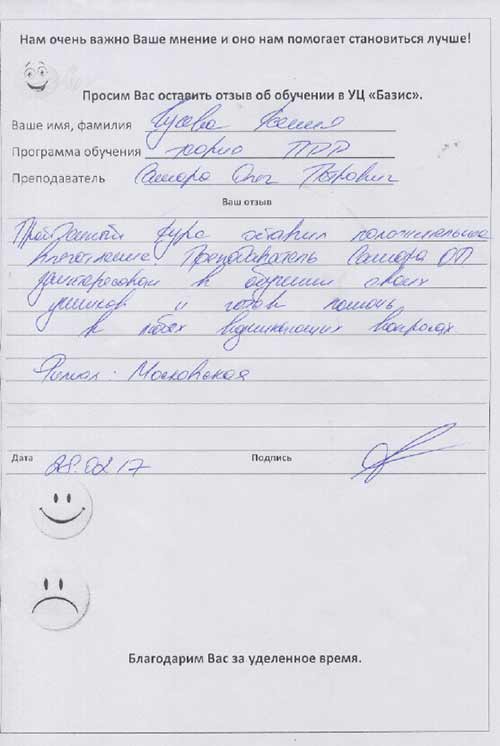 Нам очень важно Ваше мнение и оно нам помогает становиться лучше!
Просим Вас оставить отзыв об обучении в УЦ «Базис».
Ваше имя, фамилия Гусева Ксения
Программа обучения теория ПРР
Преподаватель Самара Олег Петрович
Ваш отзыв
Пройденный курс оставил положительное
впечатление. Преподаватель Самара ОП
заинтересован в обучении своих
учеников и готов помочь
в любых возникающих вопросах
Филиал: Московская
Дата 28.02 17 Подпись
Благодарим Вас за уделенное время.